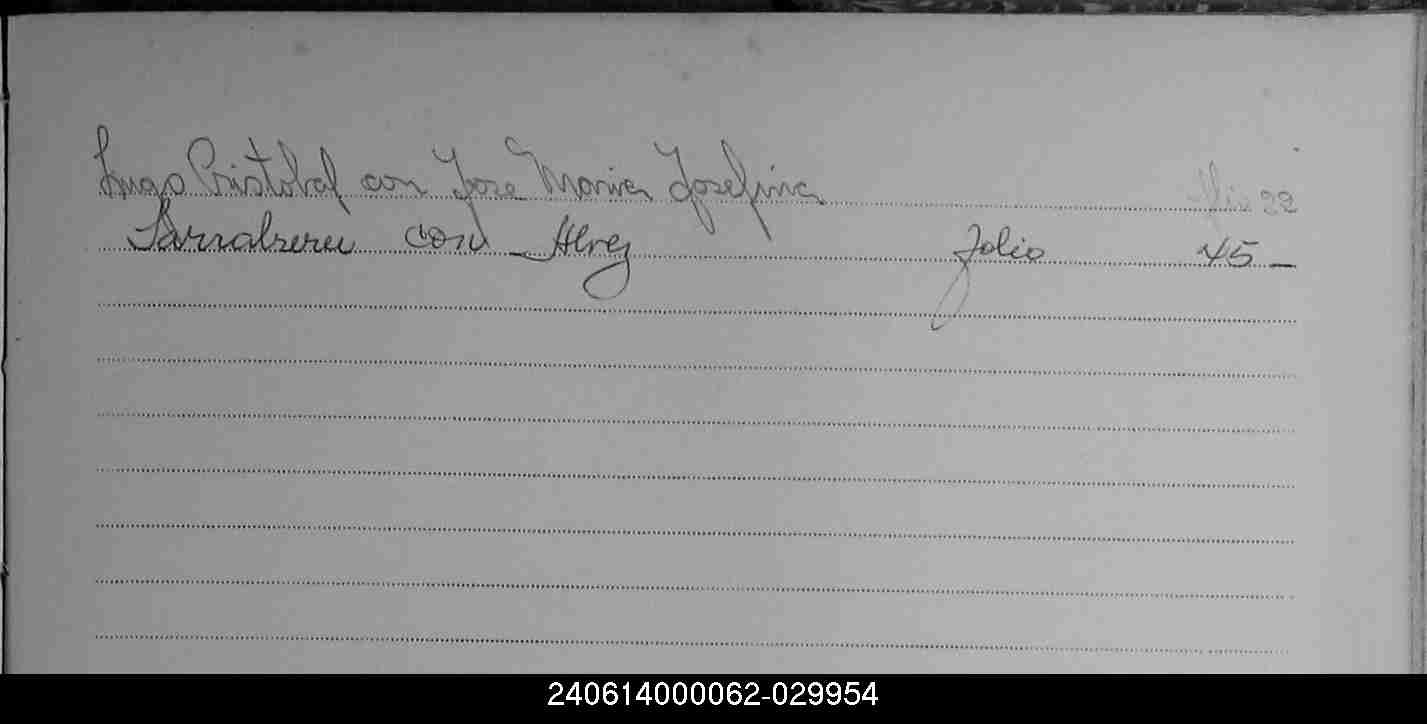 Lugo Cristobal con Jose Maria Josefina 22
Larralzeneu con Alvez folio 45 _
240614000062-029954